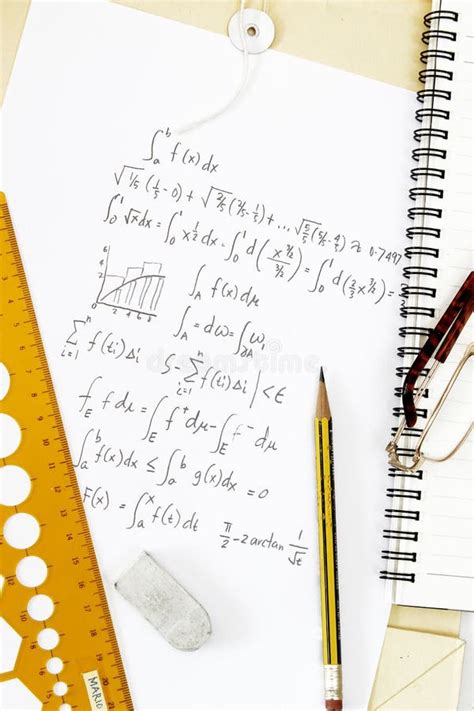 ∫_a^b f(x)dx
√1/5 (1/5-0) + √2/5 (2/5-1/5) + ... √5/5 (5/5-4/5) ≈ 0.7497
∫_0^1 √x dx = ∫_0^1 x^1/2 dx = ∫_0^1 d(x^3/2 / 3/2) = ∫_0^1 d(2/3 x^3/2) =
6
4
2
2 4 6 8
∫_A f(x)dμ
∫_A = dω = ∫_∂A ω,
Σ_{i=1}^n f(ti)Δi
S - Σ_{i=1}^n f(ti)Δi | < ∈
∫_E f dμ = ∫_E f⁺ dμ - ∫_E f⁻ dμ
∫_a^b f(x)dx ≤ ∫_a^b g(x)dx = 0
F(x) = ∫_a^x f(t)dt
π/2 - 2arctan 1/√t
dreamstime
MARIO